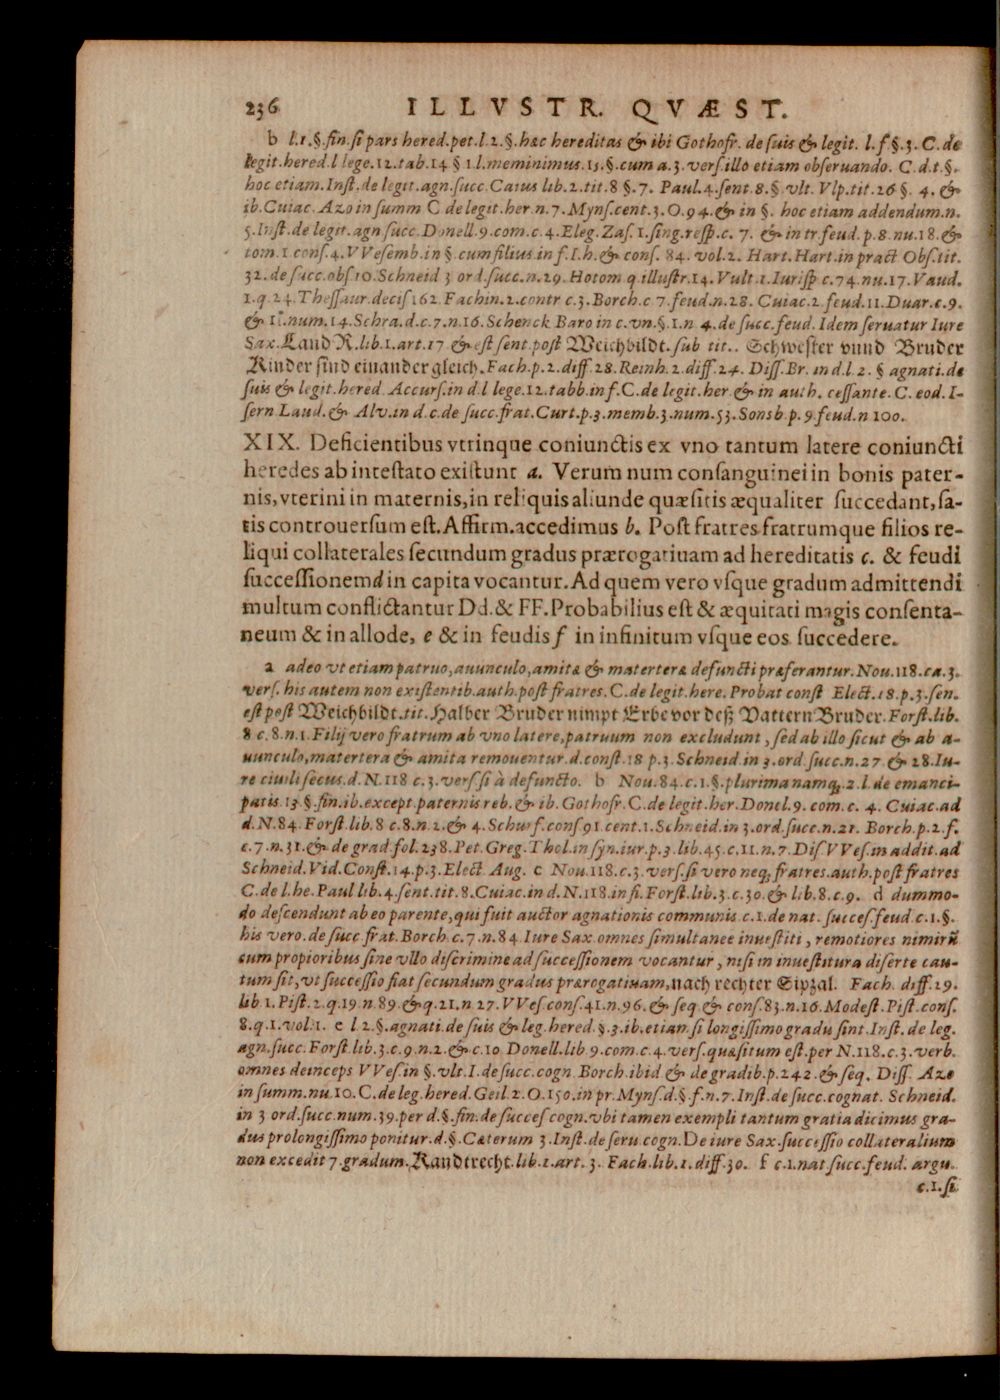 236 ILLVSTR. QVÆST.
b l.1.§.fin.si pars hered.pet.l.2.§.hæc hereditas & ibi Gothofr. de suis & legit. l.f §.3. C. de
legit.hered.l lege.12.tab.14 § 1.l.meminimus.15.§.cum a.3.vers.illo etiam obseruando. C.d.t.§.
hoc etiam.Inst.de legit.agn.succ.Caius lib.2.tit.8 §.7. Paul.4.sent.8.§ vlt. Vlp.tit.26 §. 4. &
ib.Cuiac. Azo in summ C de legit.her.n.7.Myns.cent.3.O.94.& in §. hoc etiam addendum.n.
5.Inst.de legit.agn succ.Donell.9.com.c.4.Eleg.Zas.1.sing.resp.c. 7. & in tr.feud.p.8.nu.18.&
tom.1.cons.4.VVesemb.in § cum filius.in f.I.h.& cons. 84. vol.2. Hart.Hart.in pract Obs.tit.
32.de succ.obs.10.Schneid 3 ord.succ.n.29.Hotom q.illustr.14.Vult.1.Iurisp c.74.nu.17.Vaud.
1.q.24.Thessaur.decis.162.Fachin.2.contr c.3.Borch.c 7.feud.n.28. Cuiac.2.feud.11.Duar.c.9.
& 11.num.14.Schra.d.c.7.n.16.Schenck Baro in c.vn.§.1.n 4.de succ.feud. Idem seruatur Iure
Sax.Land R.lib.1.art.17 & est sent.post Weichbildt.sub tit.. Schwester vnnd Bruder
Kinder sind einander gleich.Fach.p.2.diff.28.Reinh.2.diff.24. Diss.Br. in d.l 2. § agnati.de
suis & legit.hered. Accurs.in d.l lege.12.tabb.in f.C.de legit.her.& in auth. cessante.C. eod. I-
sern.Laud.& Alv.in d.c.de succ.frat.Curt.p.3.memb.3.num.53.Sonsb p.9 feud.n 100.
XIX. Deficientibus vtrinque coniunctis ex vno tantum latere coniuncti
heredes ab intestato existunt a. Verum num consanguinei in bonis pater-
nis,vterini in maternis,in reliquis aliunde quæsitis æqualiter succedant,sa-
tis controuersum est.Affirm.accedimus b. Post fratres fratrumque filios re-
liqui collaterales secundum gradus prærogatiuam ad hereditatis c. & feudi
successionem d in capita vocantur.Ad quem vero vsque gradum admittendi
multum conflictantur Dd.& FF.Probabilius est & æquitati magis consenta-
neum & in allode, e & in feudis f in infinitum vsque eos succedere.
a adeo vt etiam patruo,auunculo,amitæ & materteræ defuncti præferantur.Nou.118.ca.3.
vers. his autem non existentib.auth.post fratres.C.de legit.here. Probat const Elect.18.p.3.sen.
est post Weichbildt.tit.Halber Bruder nimpt Erbe vor deß Vattern Bruder.Forst.lib.
8 c.8.n.1.Filij vero fratrum ab vno latere,patruum non excludunt,sed ab illo sicut & ab a-
uunculo,matertera & amita remouentur.d.const.18 p.3.Schneid in 3.ord.succ.n.27 & 28.Iu-
re ciuili secus.d.N.118 c.3.vers.si à defuncto. b Nou.84.c.1.§.plurima namq;.2.l.de emanci-
patis.13.§.fin.ib.except.paternis reb.& ib.Gothofr.C.de legit.her.Donel.9.com.c. 4. Cuiac.ad
d.N.84.Forst.lib.8 c.8.n.2.& 4.Schurf.cons.91.cent.1.Schneid.in 3.ord.succ.n.21. Borch.p.2.f.
c.7.n.31.& de grad.fol.238.Pet.Greg.Thol.in syn.iur.p.3.lib.45.c.11.n.7.Dis.VVes.in addit.ad
Schneid.Vid.Const.14.p.3.Elect Aug. c Nou.118.c.3.vers.si vero neq; fratres.auth.post fratres
C.de l.he.Paul lib.4.sent.tit.8.Cuiac.in d.N.118.in fi.Forst.lib.3.c.30.& lib.8.c.9. d dummo-
do descendunt ab eo parente,qui fuit auctor agnationis communis c.1.de nat. succes.feud.c.1.§.
his vero.de succ frat.Borch.c.7.n.84 Iure Sax.omnes simultanee inuestiti, remotiores nimirũ
cum propioribus sine vllo discrimine ad successionem vocantur, nisi in inuestitura diserte cau-
tum sit,vt successio fiat secundum gradus prærogatiuam,nach rechter Sipzal. Fach. diff.29.
lib.1.Pist.2.q.19.n.89.& q.21.n 27.VVes.cons.41.n.96.& seq & cons.83.n.16.Modest.Pist.cons.
8.q.1.vol.1. e l 2.§.agnati.de suis & leg.hered.§.3.ib.etiam si longissimo gradu sint.Inst.de leg.
agn.succ.Forst.lib.3.c.9.n.2.& c.10 Donell.lib 9.com.c.4.vers.quæsitum est.per N.118.c.3.verb.
omnes deinceps VVes.in §.vlt.I.de succ.cogn. Borch.ibid & de gradib.p.242.& seq. Diss. Azo
in summ.nu.10.C.de leg.hered.Geil.2.O.150.in pr.Myns.d.§.f.n.7.Inst.de succ.cognat. Schneid.
in 3 ord.succ.num.39.per d.§.fin.de succes cogn.vbi tamen exempli tantum gratia dicimus gra-
dus prolongissimo ponitur.d.§.Cæterum 3.Inst.de seru cogn.De iure Sax.successio collateralium
non excedit 7.gradum.Landtrecht.lib.1.art.3. Fach.lib.1.diff.30. f c.1.nat succ.feud. argu.
c.1.si